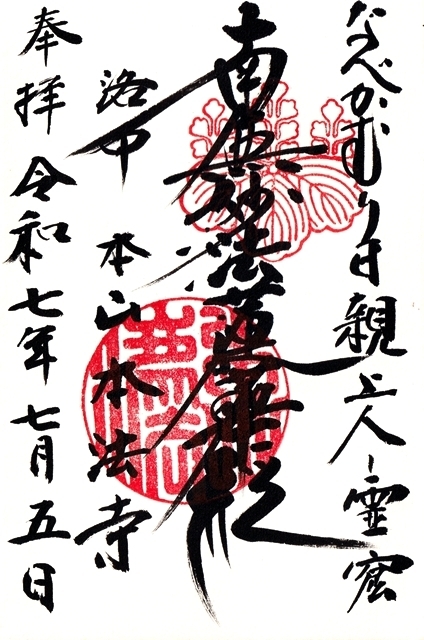 なべかむり日親上人霊窟
南無妙法蓮華経
洛中 本山本法寺
奉拝 令和七年七月五日